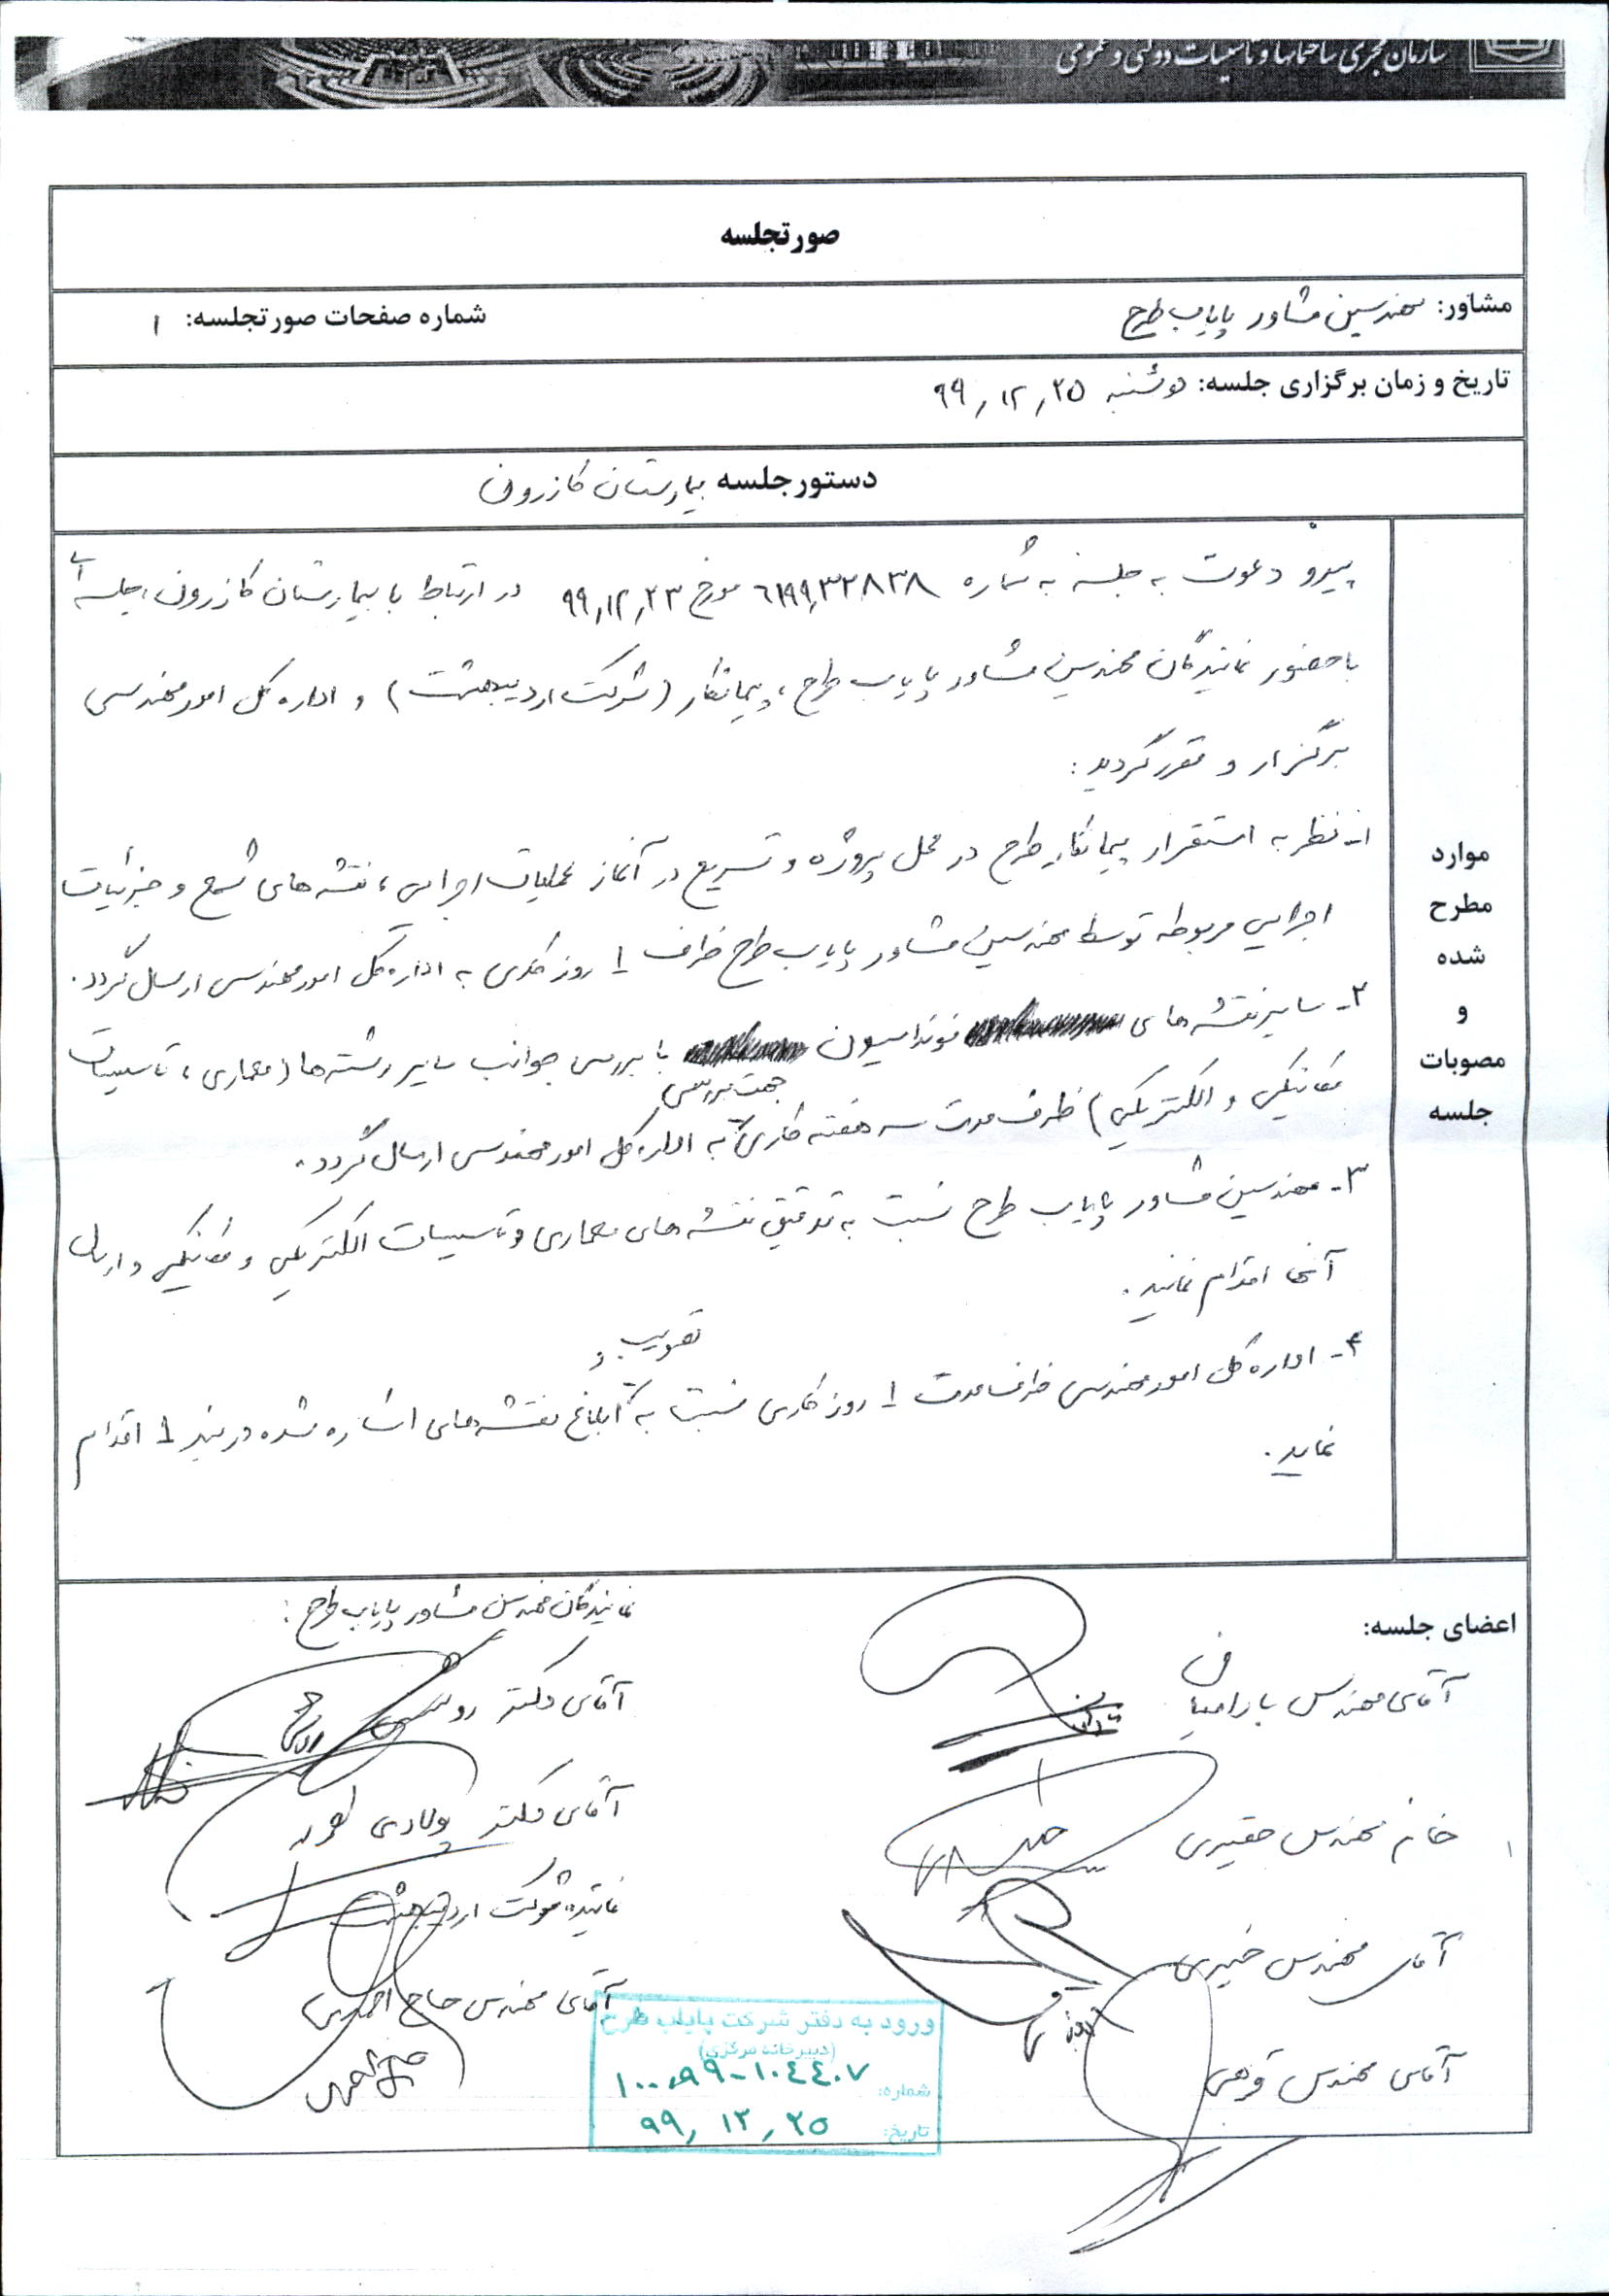 سازمان مجری ساختمانها و تاسیسات دولتی و عمومی
صورتجلسه
مشاور: مهندسین مشاور پایاب طرح
شماره صفحات صورتجلسه: ۱
تاریخ و زمان برگزاری جلسه: دوشنبه ۹۹٫۱۲٫۲۵
دستورجلسه بیمارستان کازرون
موارد
مطرح
شده
و
مصوبات
جلسه
پیرو دعوت به جلسه به شماره مورخ ۹۹٫۱۲٫۲۳ در ارتباط با بیمارستان کازرون، جلسه ای
با حضور نمایندگان مهندسین مشاور پایاب طرح، پیمانکار (شرکت اردیبهشت) و اداره کل امور مهندسی
برگزار و مقرر گردید:
۱- نظر به استقرار پیمانکار طرح در محل پروژه و تسریع در آغاز عملیات اجرایی، نقشه های شمع و جزئیات
اجرایی مربوطه توسط مهندسین مشاور پایاب طرح ظرف ۱ روز کاری به اداره کل امور مهندسی ارسال گردد.
۲- سایر نقشه های فونداسیون با بررسی جوانب سایر رشته ها (معماری، تاسیسات
مکانیکی و الکتریکی) ظرف مدت سه هفته کاری جهت بررسی به اداره کل امور مهندسی ارسال گردد.
۳- مهندسین مشاور پایاب طرح نسبت به تدقیق نقشه های معماری و تاسیسات الکتریکی و مکانیکی و ارسال
آنها اقدام نمایند.
۴- اداره کل امور مهندسی ظرف مدت ۱ روز کاری نسبت به تصویب و ابلاغ نقشه های اشاره شده در بند ۱ اقدام
نماید.
اعضای جلسه:
آقای مهندس
خانم مهندس حقیری
آقای مهندس خیری
آقای مهندس
نمایندگان مهندسین مشاور پایاب طرح:
آقای دکتر
آقای دکتر پولادی
نماینده شرکت اردیبهشت
آقای مهندس حاج احمدی
ورود به دفتر شرکت پایاب طرح
(دبیرخانه مرکزی)
شماره: ۱۰۰٫۹۹-۱۰۴۴۰۷
تاریخ: ۹۹٫۱۲٫۲۵